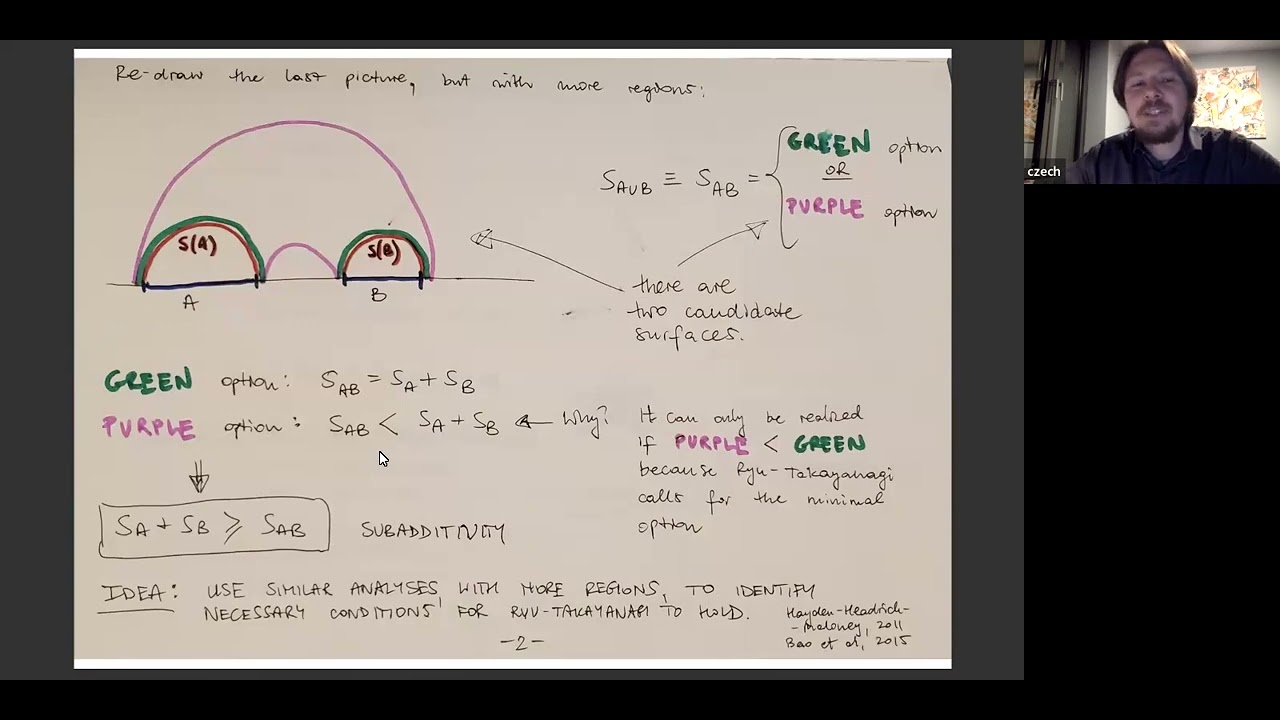 Re-draw the last picture, but with more regions:
S(A)
S(B)
A
B
S_AUB ≡ S_AB =
GREEN option
OR
PURPLE option
there are
two candidate
surfaces.
GREEN option: S_AB = S_A + S_B
PURPLE option: S_AB < S_A + S_B ← Why?
It can only be realized
if PURPLE < GREEN
because Ryu-Takayanagi
calls for the minimal
option
S_A + S_B ⩾ S_AB SUBADDITIVITY
IDEA: USE SIMILAR ANALYSES WITH MORE REGIONS, TO IDENTIFY
NECESSARY CONDITIONS FOR RYU-TAKAYANAGI TO HOLD.
Hayden-Headrick-
-Maloney, 2011
Bao et al, 2015
-2-
czech